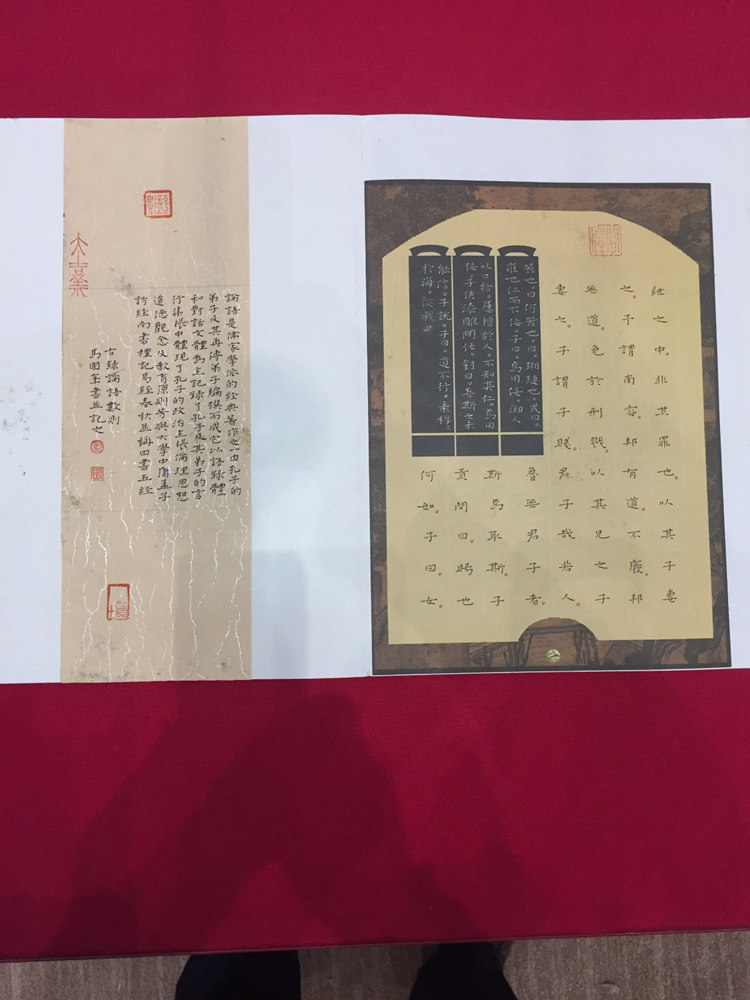 紲之中。非其罪也。以其子妻
之。子謂南容。邦有道。不廢。邦
無道。免於刑戮。以其兄之子
妻之。子謂子賤。君子哉若人。
魯無君子者。
斯焉取斯。子
貢問曰。賜也
何如。子曰。女
器也。曰何器也。曰瑚璉也。或曰。
雍也仁而不佞。子曰。焉用佞。御人
以口給。屢憎於人。不知其仁。焉用
佞。子使漆雕開仕。對曰。吾斯之未
能信。子說。子曰。道不行。乘桴
於海。從我
論語是儒家學派的經典著作之一由孔子的
弟子及其再傳弟子編撰而成它以語錄體
和對話文體為主記錄了孔子及其弟子的言
行集中體現了孔子的政治主張倫理思想
道德觀念及教育原則等與大學中庸孟子
詩經尚書禮記易經春秋並稱四書五經
古錄論語數則
馬國書並記之